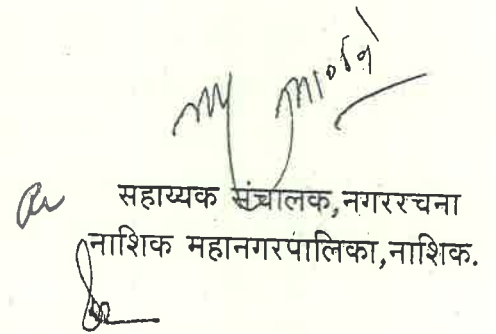 सहाय्यक संचालक,नगररचना
नाशिक महानगरपालिका,नाशिक.